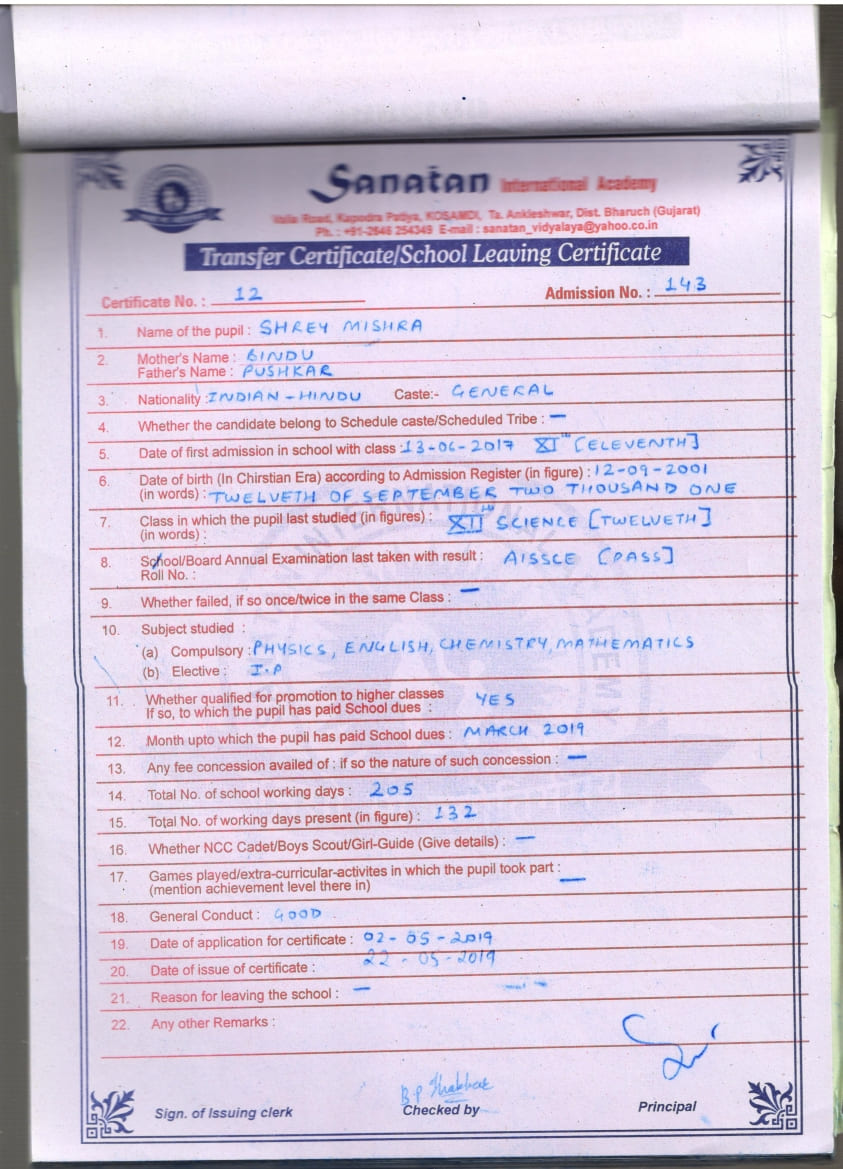 Sanatan International Academy
Valia Road, Kapodra Patiya, KOSAMDI, Ta. Ankleshwar, Dist. Bharuch (Gujarat)
Ph. : +91-2646 254349 E-mail : sanatan_vidyalaya@yahoo.co.in
Transfer Certificate/School Leaving Certificate
Certificate No. : 12 Admission No. : 143
1. Name of the pupil : SHREY MISHRA
2. Mother's Name : BINDU
Father's Name : PUSHKAR
3. Nationality : INDIAN - HINDU Caste:- GENERAL
4. Whether the candidate belong to Schedule caste/Scheduled Tribe : —
5. Date of first admission in school with class : 13-06-2017 XI th [ELEVENTH]
6. Date of birth (In Chirstian Era) according to Admission Register (in figure) : 12-09-2001
(in words) : TWELVETH OF SEPTEMBER TWO THOUSAND ONE
7. Class in which the pupil last studied (in figures) : XII th SCIENCE [TWELVETH]
(in words) :
8. School/Board Annual Examination last taken with result : AISSCE [PASS]
Roll No. :
9. Whether failed, if so once/twice in the same Class : —
10. Subject studied :
(a) Compulsory : PHYSICS, ENGLISH, CHEMISTRY, MATHEMATICS
(b) Elective : I.P
11. Whether qualified for promotion to higher classes YES
If so, to which the pupil has paid School dues :
12. Month upto which the pupil has paid School dues : MARCH 2019
13. Any fee concession availed of : if so the nature of such concession : —
14. Total No. of school working days : 205
15. Total No. of working days present (in figure) : 132
16. Whether NCC Cadet/Boys Scout/Girl-Guide (Give details) : —
17. Games played/extra-curricular-activites in which the pupil took part : —
(mention achievement level there in)
18. General Conduct : GOOD
19. Date of application for certificate : 02-05-2019
20. Date of issue of certificate : 22-05-2019
21. Reason for leaving the school : —
22. Any other Remarks :
B.P Thakkar
Sign. of Issuing clerk Checked by Principal